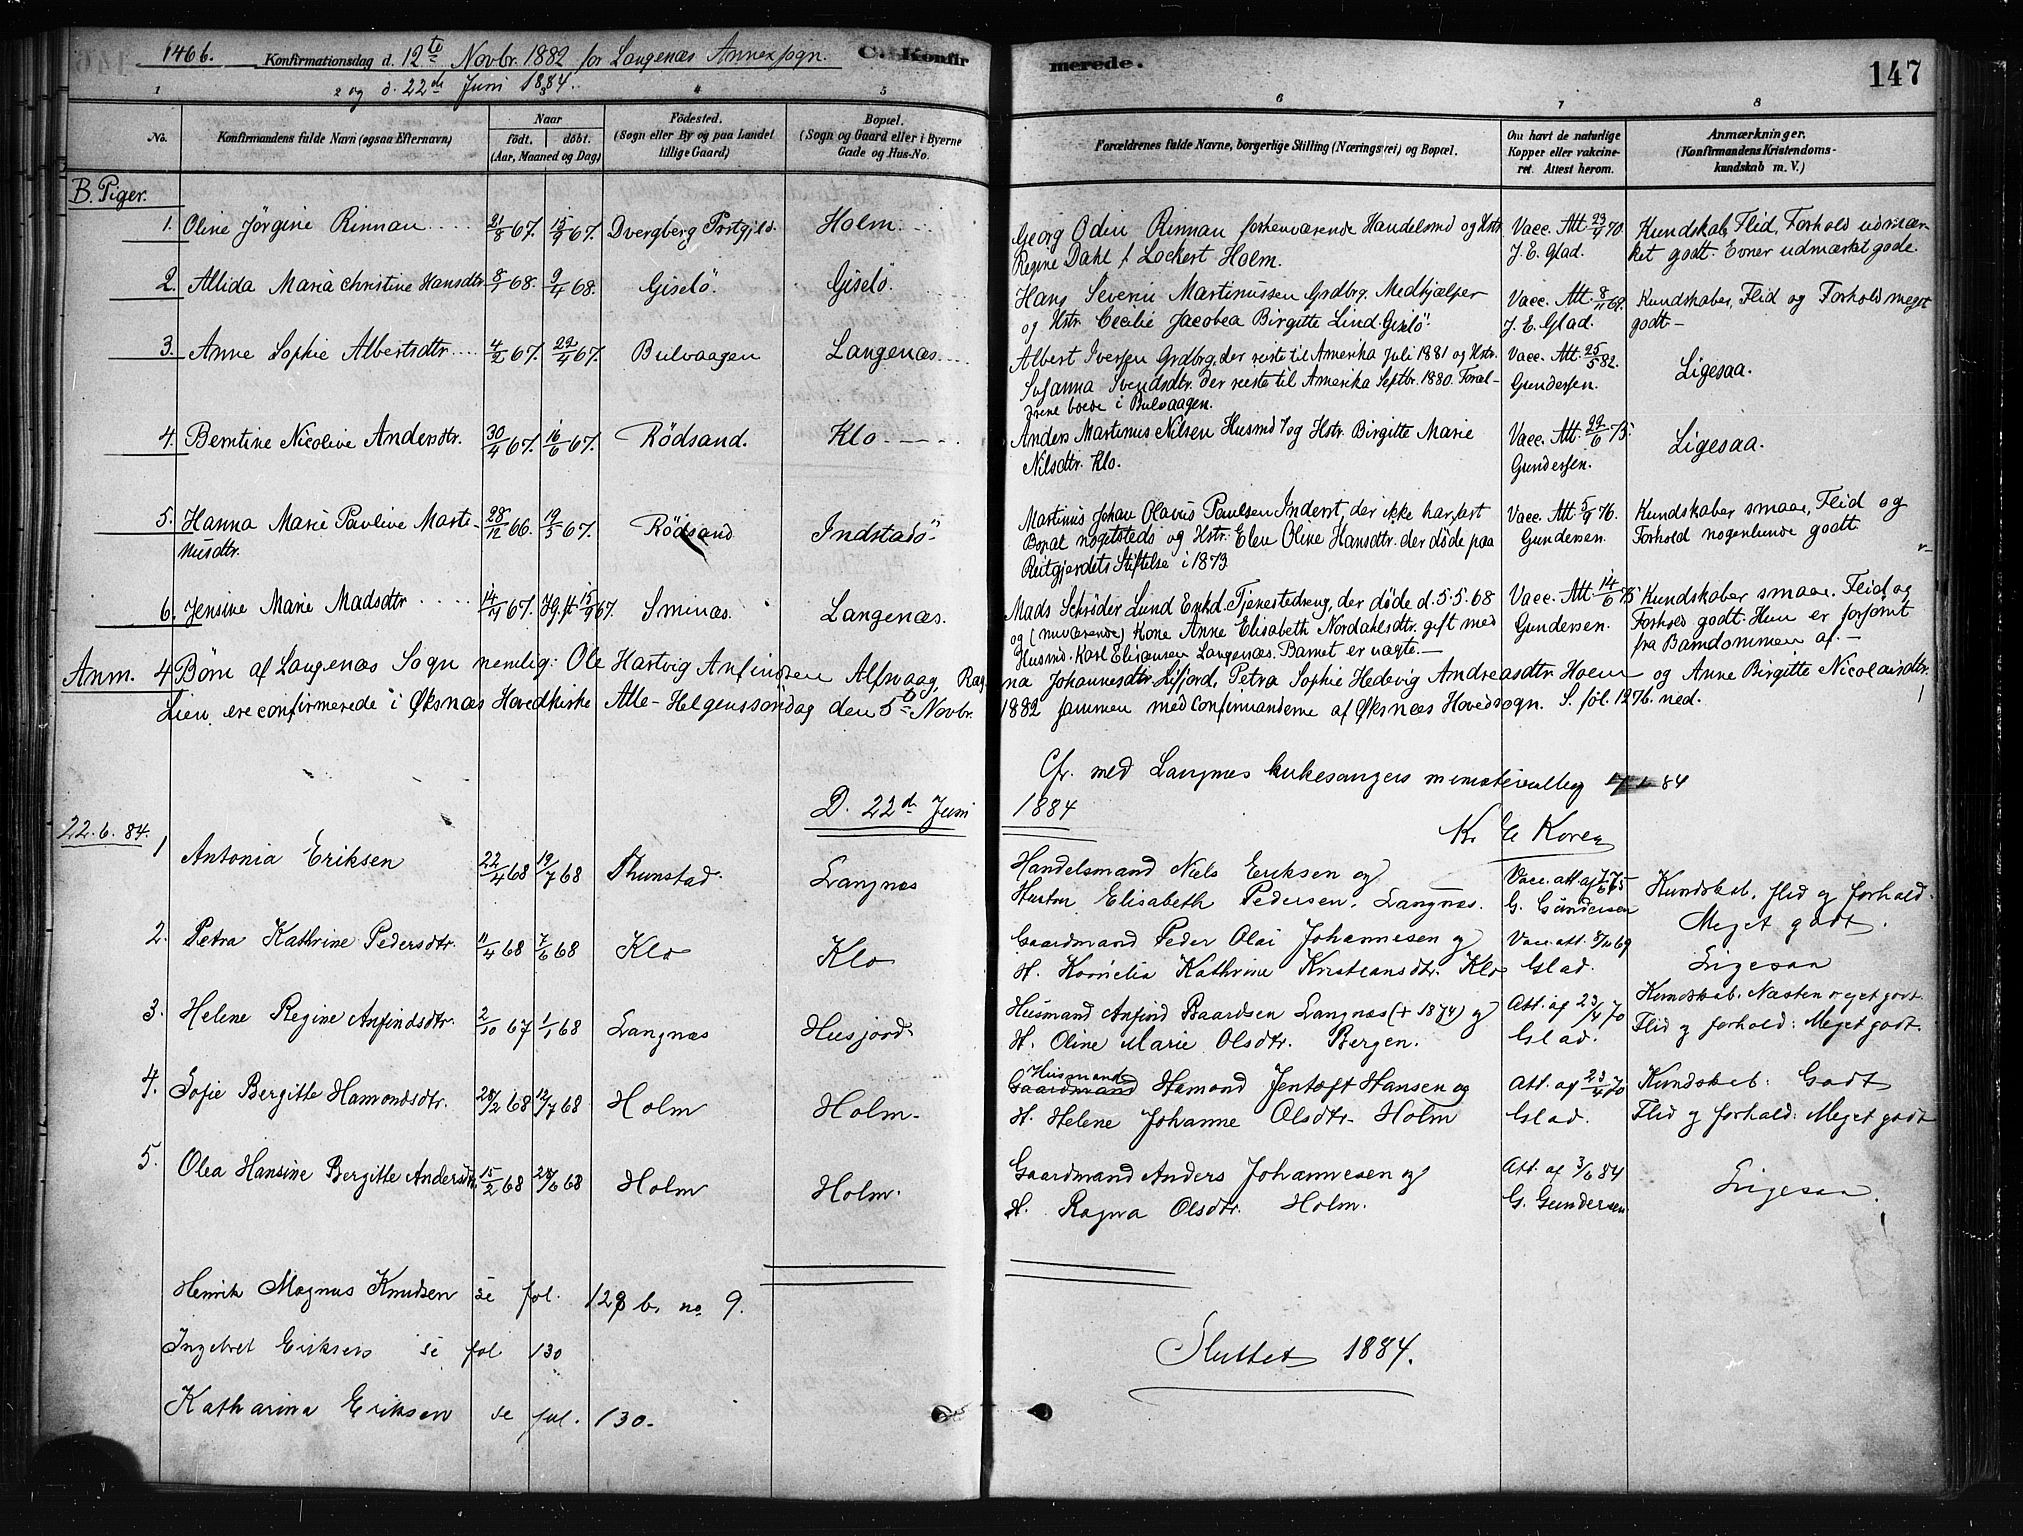 146b. Konfirmationsdag d. 12te Novbr. 1882 for Langenæs Annexsogn. C. Konfirmerede. 147
og d. 22de Juni 1884.
1 2 3 4 5 6 7 8
No. Konfirmandens fulde Navn (ogsaa Efternavn) Naar Födt. döbt. (Aar, Maaned og Dag) Födested. (Sogn eller By og paa Landet tillige Gaard) Bopæl. (Sogn og Gaard eller i Byerne Gade og Hus-No. Forældrenes fulde Navne, borgerlige Stilling (Næringsvei) og Bopæl. Om havt de naturlige Kopper eller vakcineret. Attest herom. Anmærkninger. (Konfirmandens Kristendomskundskab m. V.)
B. Piger.
1. Oline Jörgine Rinnan 21/8 67. 15/9 67. Dvergberg Prstgjld. Holm. Georg Odin Rinnan forhenværende Handelsmd og Hstr Vacc. Att. 23/4 70. Kundskab, Flid, Forhold udmær-
Regine Dahl f. Lockert Holm. J. E. Glad. ket godt. Evner udmærket gode.
2. Allida Maria Christine Hansdtr 8/1 68. 9/4 68. Giselö. Giselö. Hans Severin Martinussen Grdbrg. Medhjælper Vacc. Att. 8/11 68. Kundskaber, Flid og Forhold meget
og Hstr. Cecilie Jacobea Birgitte Lind Giselö. J. E. Glad. godt.-
3. Anne Sophie Albertsdtr 4/2 67. 22/4 67. Bulvaagen Langenæs. Albert Iversen Grdbrg. der reiste til Amerika Juli 1881 og Hstr. Vacc. Att. 25/5 82. Ligesaa.
Susanna Svendsdtr. der reiste til Amerika Septbr. 1880. Foræl- Gundersen.
drene boede i Bulvaagen.
4. Berntine Nicoline Andersdtr. 30/4 67. 16/6 67. Rödsand. Klo. Anders Martinus Nilsen Husmd og Hstr. Birgitte Marie Vacc. Att. 22/6 75. Ligesaa.
Nilsdtr. Klo. Gundersen.
5. Hanna Marie Pauline Marti- 28/12 66. 19/5 67. Rödsand Indstadö Martinus Johan Olavus Paulsen Inderst, der ikke har fast Vacc. Att. 5/9 76. Kundskaber smaae, Flid og
nusdtr. Bopæl nogetsteds og Hstr. Elen Oline Hansdtr. der døde paa Gundersen. Forhold nogenlunde godt.
Reitgjerdets Stiftelse i 1873
6. Jensine Marie Madsdtr 14/4 67. 15/9 67. Sminæs. Langenæs. Mads Schrøder Lund Enkd. Tjenestedreng, der døde d. 5.5.68 Vacc. Att. 14/6 75 Kundskaber smaae. Flid og
og (nuværende) Kone Anne Elisabeth Nordahlsdtr. gift med Gundersen. Forhold godt. Hun er forsömt
Husmd. Karl Eliæusen Langenæs. Barnet er uægte.- fra Barndommen af.-
Anm. 4 Børn af Langenæs Sogn nemlig: Ole Hartvig Anfindsen Alfsvaag, Ragna Johannesdtr. Lifjord, Petra Sophie Hedevig Andreasdtr Holm og Anne Birgitte Nicolaisdtr.
Lien ere confirmerede i Øksnæs Hovedkirke Alle-Helgenssöndag den 5te Novbr. 1882 sammen med confirmanderne af Øksnæs Hovedsogn. S. fol. 127b. ned.
Cfr. med Langnes kirkesangers ministerialbog 84
D. 22de Juni 1884
K. Koren
22.6.84.
1 Antonia Eriksen 22/4 68 19/7 68 Thunstad. Langnæs Handelsmand Niels Eriksen og Vacc. att. af G. Gundersen Kundskab, flid og forhold.
Hustru Elisabeth Pedersen. Langnæs. Meget godt.
2. Petra Kathrine Pedersdtr. 11/4 68 7/6 68 Klo Klo Gaardmand Peder Olai Johannesen og Vacc. att. Ligesaa
H. Kornelia Kathrine Kristiansdtr. Klo Glad.
3. Helene Regine Anfindsdtr. 2/10 67 1/1 68 Langnæs Husjord Husmand Anfind Baardsen Langnæs (+ 1874) og Att. af 23/4 70 Kundskab. Næsten meget godt.
H. Oline Marie Olsdtr. Bergen. Glad. Flid og forhold: Meget godt.
4. Sofie Bergitte Hamondsdtr. 28/2 68 12/7 68 Holm Holm. Husmand Gaardmand Hamond Jentoft Hansen og Att. af 23/4 70 Kundskab: Godt
H. Helene Johanne Olsdtr. Holm Glad. Flid og forhold: Meget godt
5. Olea Hansine Bergitte Andersdtr 15/2 68 28/6 68 Holm Holm. Gaardmand Anders Johannesen og Att. af 3/6 84 Ligesaa.
H. Ragna Olsdtr. Holm. G. Gundersen
Henrik Magnus Knudsen se fol. 128 b. no. 9.
Ingebret Eriksen se fol 130
Slutted 1884.
Katharina Eriksen se fol. 130.